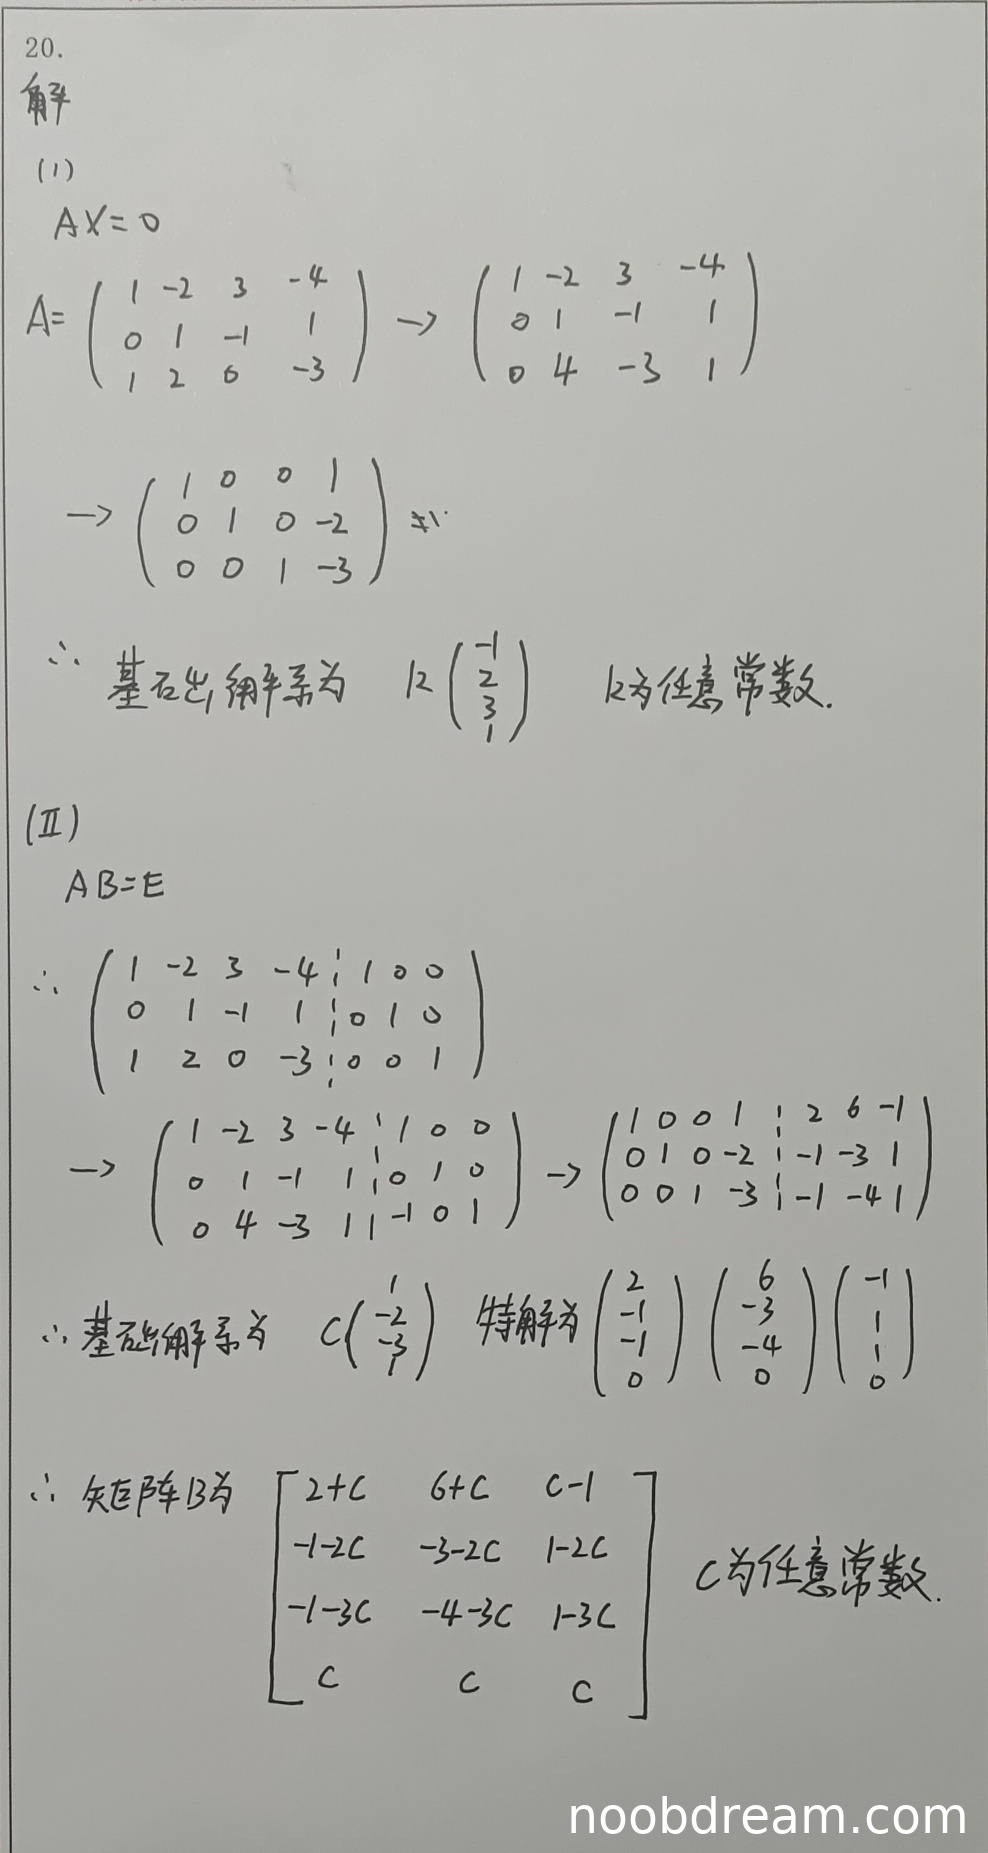 20.
解
(1)
AX=0
A= ( 1 -2 3 -4 ) → ( 1 -2 3 -4 )
( 0 1 -1 1 ) ( 0 1 -1 1 )
( 1 2 0 -3 ) ( 0 4 -3 1 )
→ ( 1 0 0 1 )
( 0 1 0 -2 )
( 0 0 1 -3 )
∴ 基础解系为 k ( -1 2 3 1 ) k为任意常数.
(Ⅱ)
AB=E
∴ ( 1 -2 3 -4 ¦ 1 0 0 )
( 0 1 -1 1 ¦ 0 1 0 )
( 1 2 0 -3 ¦ 0 0 1 )
→ ( 1 -2 3 -4 ¦ 1 0 0 ) → ( 1 0 0 1 ¦ 2 6 -1 )
( 0 1 -1 1 ¦ 0 1 0 ) ( 0 1 0 -2 ¦ -1 -3 1 )
( 0 4 -3 1 | -1 0 1 ) ( 0 0 1 -3 ¦ -1 -4 1 )
∴ 基础解系为 C ( 1 -2 -3 1 ) 特解为 ( 2 -1 -1 0 ) ( 6 -3 -4 0 ) ( -1 1 1 0 )
∴ 矩阵B为 [ 2+C 6+C C-1 ]
[ -1-2C -3-2C 1-2C ]
[ -1-3C -4-3C 1-3C ] C为任意常数.
[ C C C ]
noobdream.com